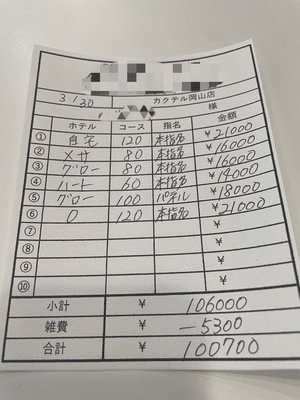 3/20 カクテル岡山店
様
ホテル コース 指名 金額
① 自宅 120 本指名 ¥21000
② メサ 80 本指名 ¥16000
③ グロー 80 本指名 ¥16000
④ ハート 60 本指名 ¥14000
⑤ グロー 100 パネル ¥18000
⑥ O 120 本指名 ¥21000
⑦ ¥
⑧ ¥
⑨ ¥
⑩ ¥
小計 ¥ 106000
雑費 ¥ -5300
合計 ¥ 100700